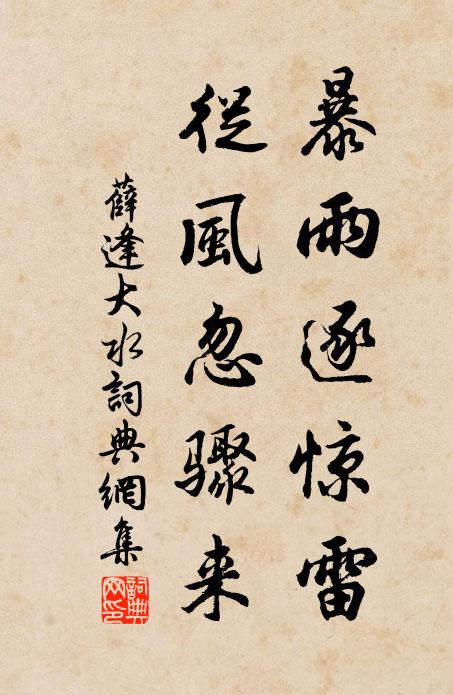 暴雨逐惊雷
從風忽驟来
薛逢大水詞典網集
詞典网印